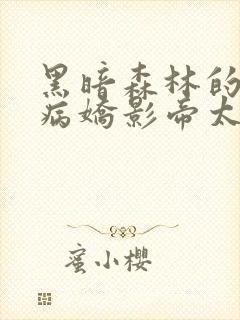 黑暗森林的
病嬌影帝太
蜜小櫻